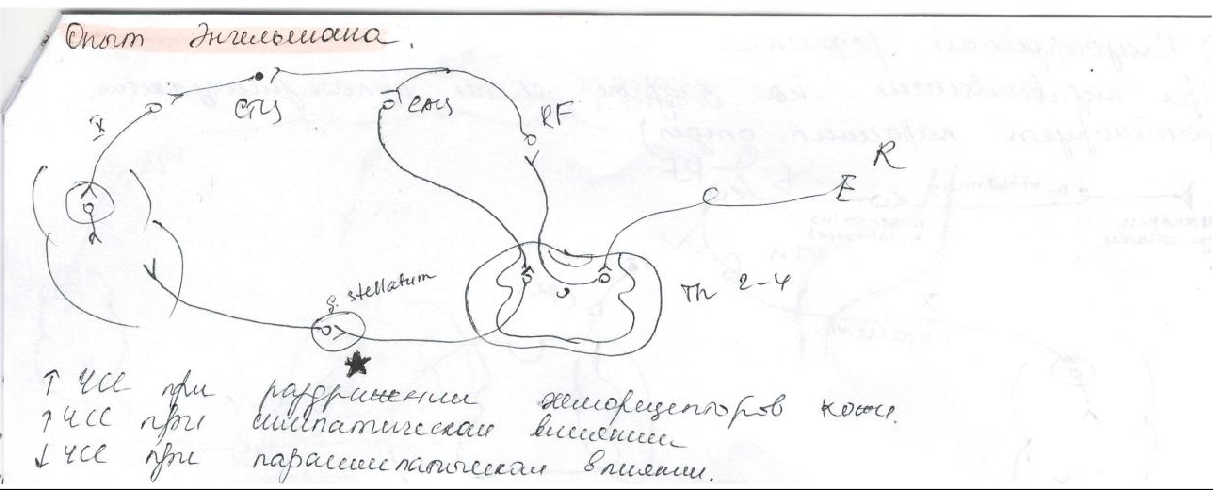 Опыт Энгельмана.
X
СТЦ
САЦ
RF
R
E
Th 2-4
g. stellatum
↑ ЧСС при раздражении хеморецепторов кожи.
↑ ЧСС при симпатическом влиянии
↓ ЧСС при парасимпатическом влиянии.